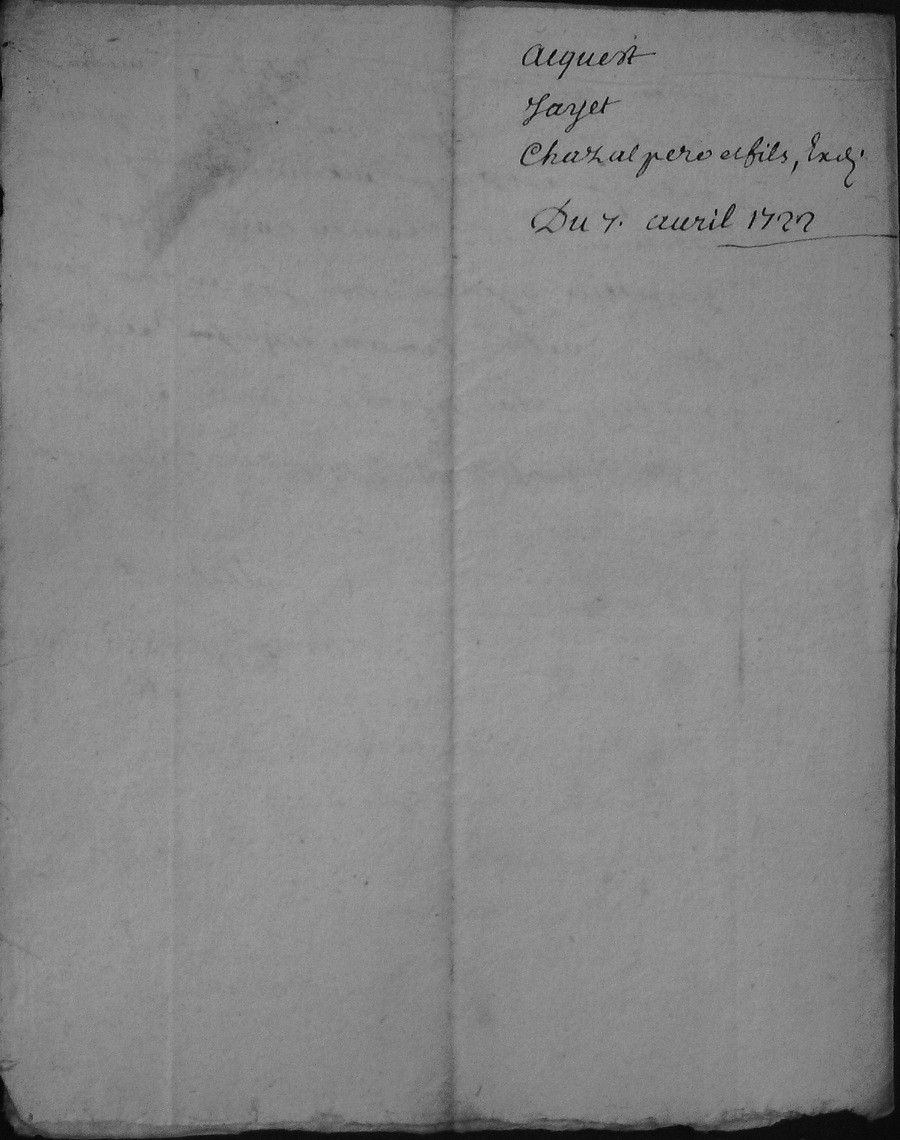 acquest
Jayet
Chazal pere et fils,
Du 7. auril 1722